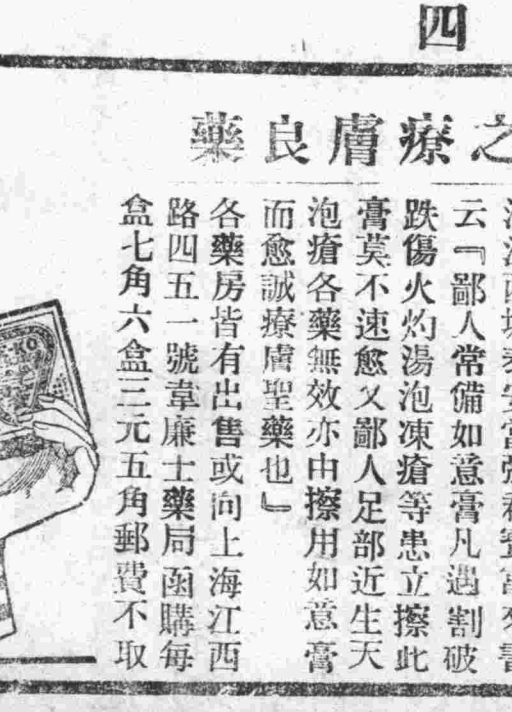 四
之療膚良藥
云『鄙人常備如意膏凡遇割破
跌傷火灼湯泡凍瘡等患立擦此
膏莫不速愈又鄙人足部近生天
泡瘡各藥無效亦由擦用如意膏
而愈誠療膚聖藥也』
各藥房皆有出售或向上海江西
路四五一號韋廉士藥局函購每
盒七角六盒三元五角郵費不取